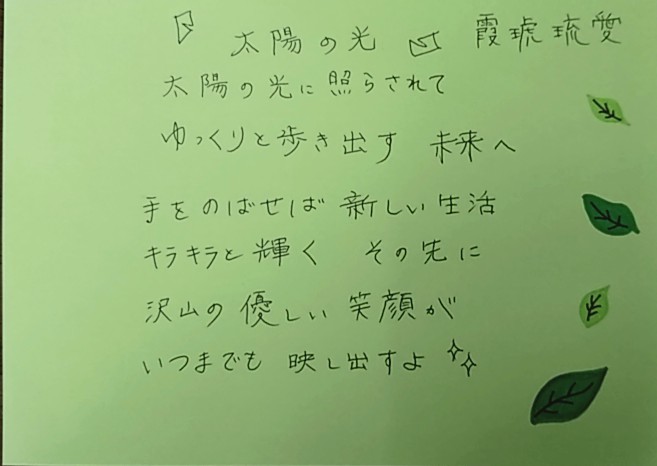 『太陽の光』 霞琥琉愛
太陽の光に照らされて
ゆっくりと歩き出す 未来へ
手をのばせば 新しい生活
キラキラと輝く その先に
沢山の優しい笑顔が
いつまでも 映し出すよ